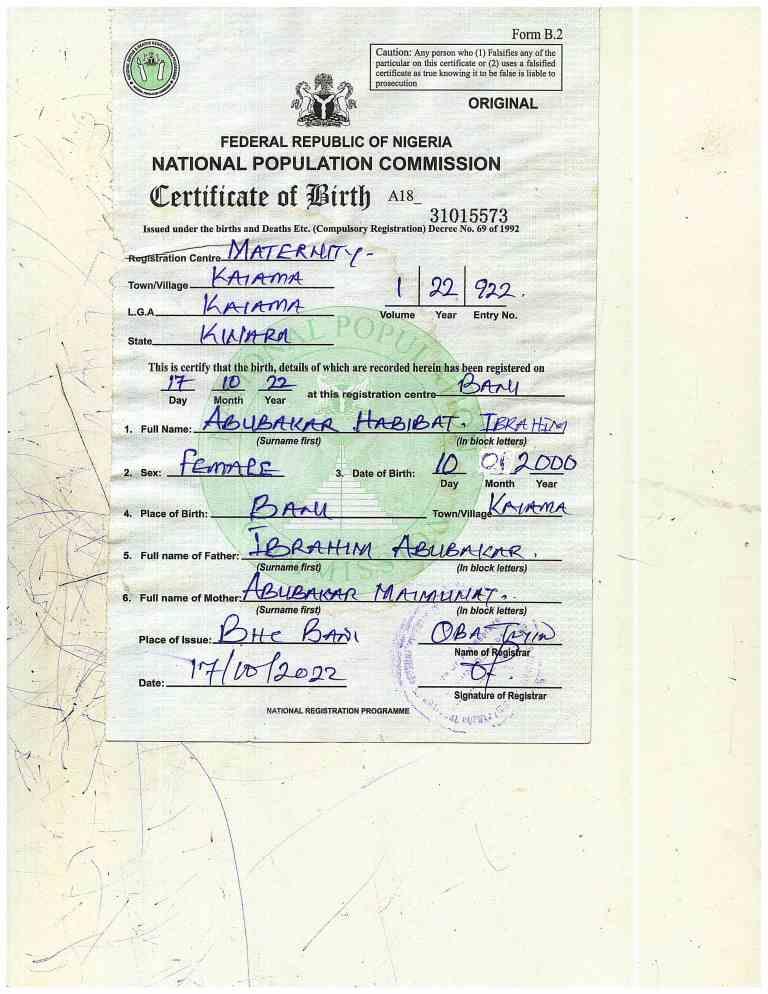 Form B.2
Caution: Any person who (1) Falsifies any of the
particular on this certificate or (2) uses a falsified
certificate as true knowing it to be false is liable to
prosecution
ORIGINAL
FEDERAL REPUBLIC OF NIGERIA
NATIONAL POPULATION COMMISSION
Certificate of Birth A18_
31015573
Issued under the births and Deaths Etc. (Compulsory Registration) Decree No. 69 of 1992
Registration Centre MATERNITY-
Town/Village KAIAMA
1 22 922.
L.G.A. KAIAMA
Volume Year Entry No.
State KWARA
This is certify that the birth, details of which are recorded herein has been registered on
17 10 22 at this registration centre BANI
Day Month Year
1. Full Name: ABUBAKAR HABIBAT. IBRAHIM
(Surname first) (In block letters)
2. Sex: FEMALE 3. Date of Birth: 10 01 2000
Day Month Year
4. Place of Birth: BANI Town/Village KAIAMA
5. Full name of Father: IBRAHIM ABUBAKAR.
(Surname first) (In block letters)
6. Full name of Mother: ABUBAKAR MAIMUNAT.
(Surname first) (In block letters)
Place of Issue: BHC BANI OBA
Name of Registrar
Date: 17/10/2022
Signature of Registrar
NATIONAL REGISTRATION PROGRAMME